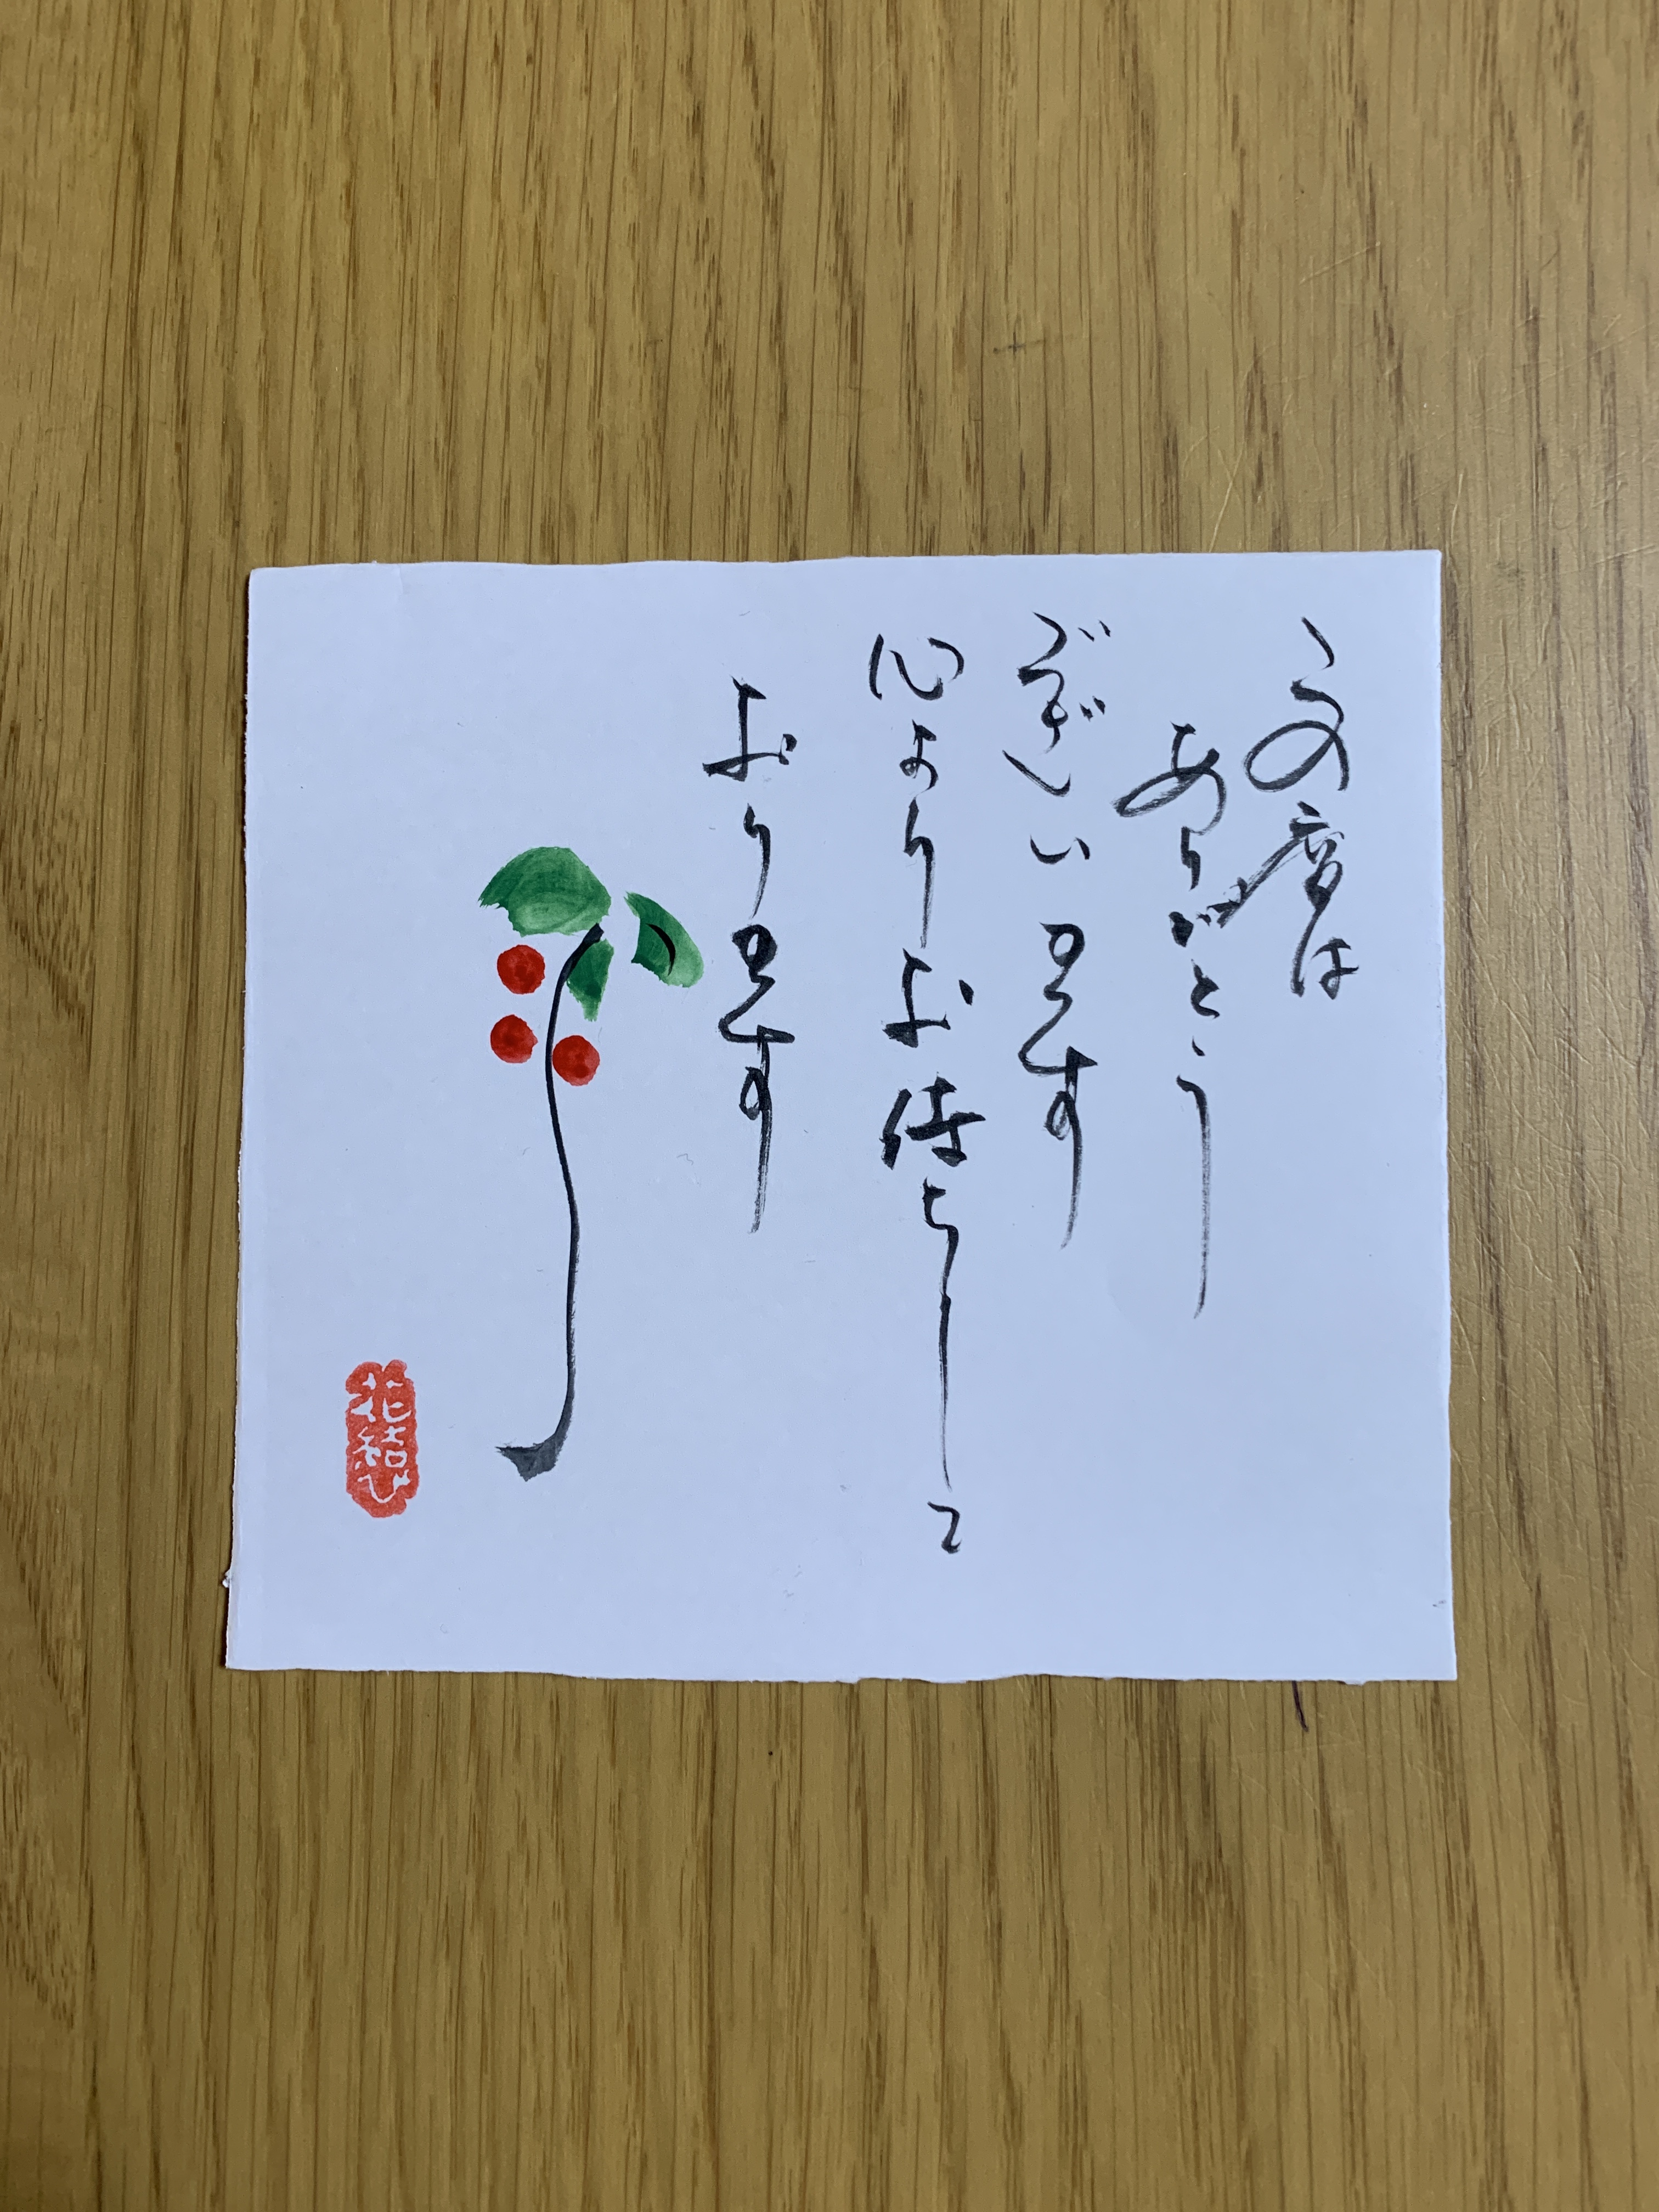 この度は
ありがとう
ございます
心よりお待ちして
おります
花結び